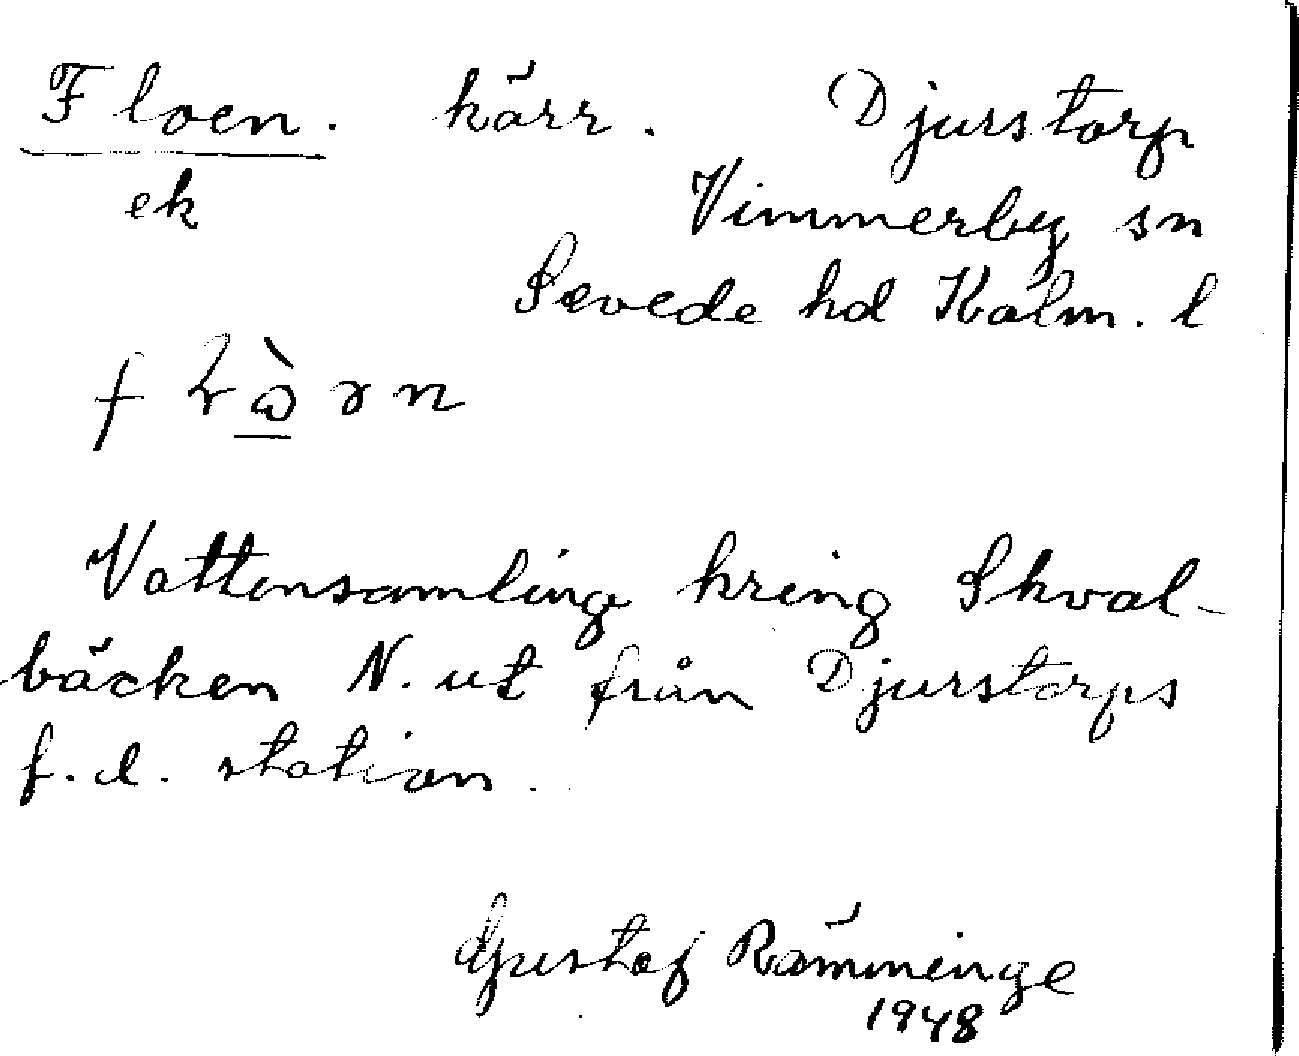 Floen. kärr. Djurstorp
ek Vimmerby sn
Sevede hd Kalm. l
Vattensamling kring Skval-
bäcken N. ut från Djurstorps
f. d. station.
Gustaf Rämminge
1948